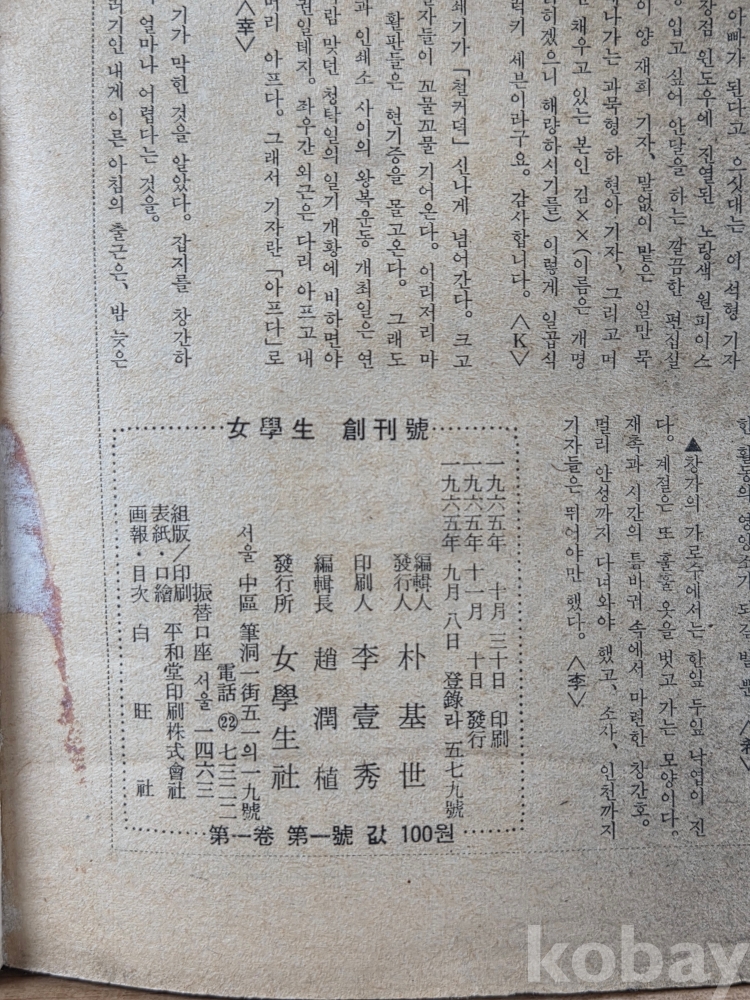 아빠가 된다고 으싯대는 이 석형 기자
장점 윈도우에 진열된 노랑색 원피이스
입고 싶어 안달을 하는 깔끔한 편집실
이 양 재희 기자, 말없이 맡은 일만 묵
해나가는 과묵형 하 현아 기자, 그리고 머
채우고 있는 본인 김××(이름은 개명
하겠으니 해량하시기를) 이렇게 일곱식
럭키 세븐이라구요. 감사합니다. 〈K〉
쇄기가 「철커덕」 신나게 넘어간다. 크고
자들이 꼬물꼬물 기어온다. 이리저리 마
활판들은 현기증을 몰고온다. 그래도
과 인쇄소 사이의 왕복운동 개최일은 연
란 맞던 청탁일의 일기 개황에 비하면야
권일테지. 좌우간 외근은 다리 아프고 내
머리 아프다. 그래서 기자란 「아프다」로
〈幸〉
기가 막힌 것을 알았다. 잡지를 창간하
얼마나 어렵다는 것을.
러기인 내게 이른 아침의 출근은, 밤 늦은
▲창가의 가로수에서는 한잎 두잎 낙엽이 진
다. 계절은 또 훌훌 옷을 벗고 가는 모양이다.
재촉과 시간의 틈바귀 속에서 마련한 창간호.
멀리 안성까지 다녀와야 했고, 소사, 인천까지
기자들은 뛰어야만 했다. 〈李〉
女學生 創刊號
一九六五年 十月 三十日 印刷
一九六五年 十一月 十日 發行
一九六五年 九月 八日 登錄라 五七九號
編輯人
發行人 朴基世
印刷人 李壹秀
編輯長 趙潤植
發行所 女學生社
서울 中區 筆洞一街五一의一九號
電話 ㉒ 七三二二
振替口座 서울 一四六三
組版/印刷 平和堂印刷株式會社
表紙・口繪
画報・目次 白旺社
第一卷 第一號 값 100원
kobay